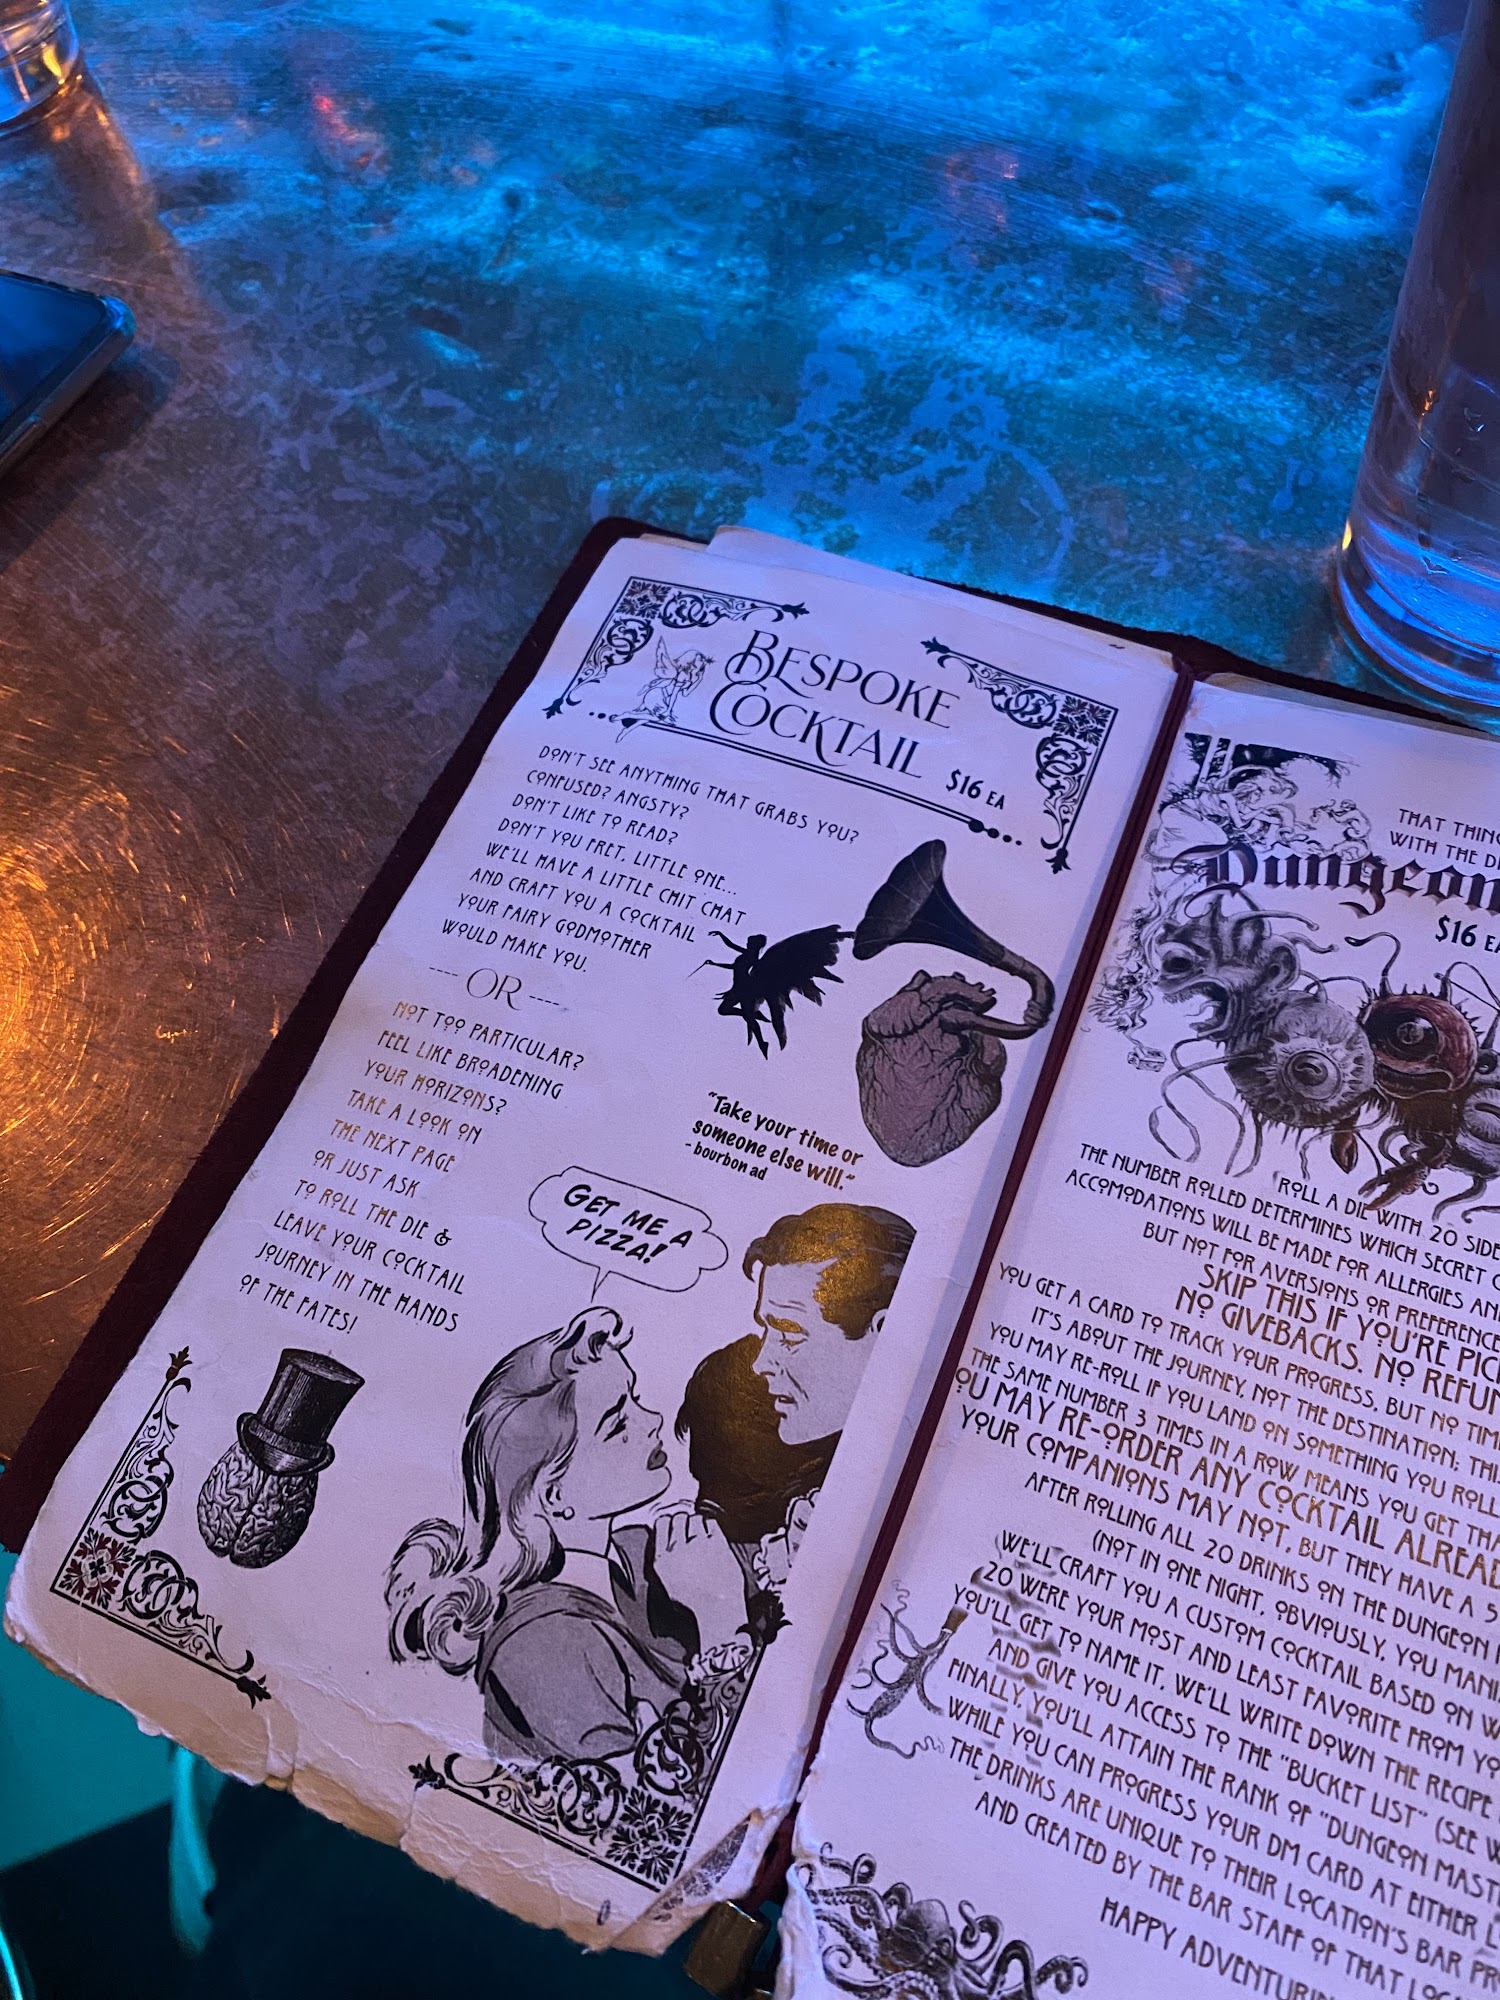 BESPOKE
COCKTAIL
$16 EA
DON'T SEE ANYTHING THAT GRABS YOU?
CONFUSED? ANGSTY?
DON'T LIKE TO READ?
DON'T YOU FRET, LITTLE ONE...
WE'LL HAVE A LITTLE CHIT CHAT
AND CRAFT YOU A COCKTAIL
YOUR FAIRY GODMOTHER
WOULD MAKE YOU.
---- OR ----
NOT TOO PARTICULAR?
FEEL LIKE BROADENING
YOUR HORIZONS?
TAKE A LOOK ON
THE NEXT PAGE
OR JUST ASK
TO ROLL THE DIE &
LEAVE YOUR COCKTAIL
JOURNEY IN THE HANDS
OF THE FATES!
"Take your time or
someone else will."
- bourbon ad
GET ME A
PIZZA!
THAT THING
WITH THE
Dungeon
$16 EA
ROLL A DIE WITH 20 SIDE
THE NUMBER ROLLED DETERMINES WHICH SECRET
ACCOMODATIONS WILL BE MADE FOR ALLERGIES AN
BUT NOT FOR AVERSIONS OR PREFERENCE
SKIP THIS IF YOU'RE PIC
NO GIVEBACKS. NO REFUN
YOU GET A CARD TO TRACK YOUR PROGRESS, BUT NO TIM
IT'S ABOUT THE JOURNEY, NOT THE DESTINATION; THI
YOU MAY RE-ROLL IF YOU LAND ON SOMETHING YOU ROLL
THE SAME NUMBER 3 TIMES IN A ROW MEANS YOU GET THA
OU MAY RE-ORDER ANY COCKTAIL ALREAD
YOUR COMPANIONS MAY NOT, BUT THEY HAVE A 5
AFTER ROLLING ALL 20 DRINKS ON THE DUNGEON
(NOT IN ONE NIGHT, OBVIOUSLY, YOU MANI
(WE'LL CRAFT YOU A CUSTOM COCKTAIL BASED ON W
20 WERE YOUR MOST AND LEAST FAVORITE FROM YO
YOU'LL GET TO NAME IT, WE'LL WRITE DOWN THE RECIPE
AND GIVE YOU ACCESS TO THE "BUCKET LIST" (SEE W
FINALLY, YOU'LL ATTAIN THE RANK OF "DUNGEON MAST
WHILE YOU CAN PROGRESS YOUR DM CARD AT EITHER L
THE DRINKS ARE UNIQUE TO THEIR LOCATION'S BAR PR
AND CREATED BY THE BAR STAFF OF THAT LOC
HAPPY ADVENTURIN